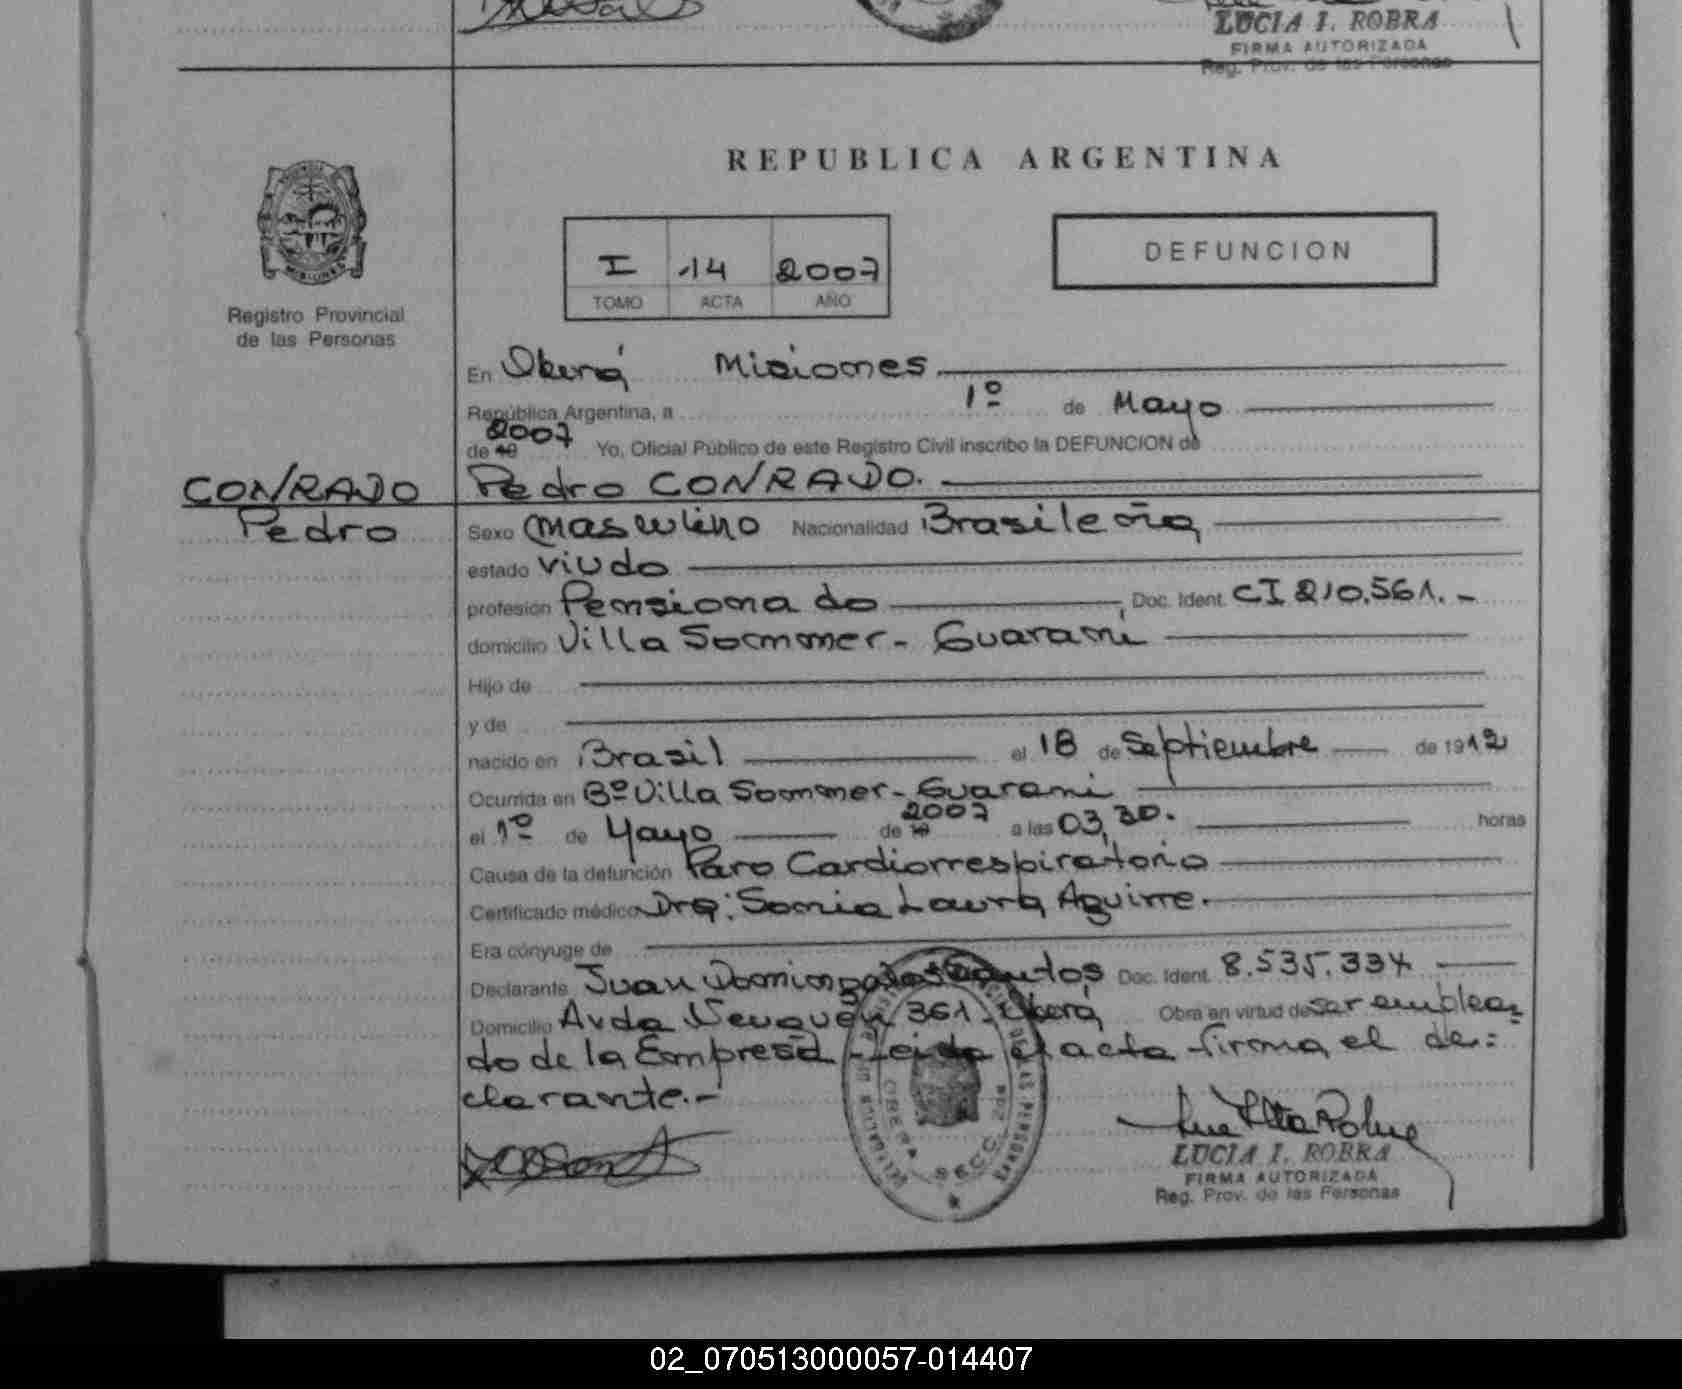 LUCIA I. ROBRA
FIRMA AUTORIZADA
Reg. Prov. de las Personas
REPUBLICA ARGENTINA
MISIONES
Registro Provincial
de las Personas
I 14 2007
TOMO ACTA AÑO
DEFUNCION
En Oberá Misiones
República Argentina, a 1º de Mayo
2007
de 19 Yo, Oficial Público de este Registro Civil inscribo la DEFUNCION de
CONRADO Pedro CONRADO.
Pedro
Sexo masculino Nacionalidad Brasileña
estado viudo
profesión Pensionado Doc. Ident. CI 210.561.-
domicilio Villa Sommer - Guaraní
Hijo de
y de
nacido en Brasil el 18 de Septiembre de 1912
Ocurrida en Bº Villa Sommer - Guaraní
el 1º de Mayo de 19 2007 a las 03,30. horas
Causa de la defunción Paro Cardiorrespiratorio
Certificado médico Dra: Sonia Laura Aguirre.
Era cónyuge de
Declarante Juan Domingo Dos Santos Doc. Ident. 8.535.334
Domicilio Avda Neuquén 361 - Oberá Obra en virtud de ser emplea-
do de la Empresa - Leida el acta firma el de-
clarante.-
OBERA SECC. 2da
LUCIA I. ROBRA
FIRMA AUTORIZADA
Reg. Prov. de las Personas
02_070513000057-014407